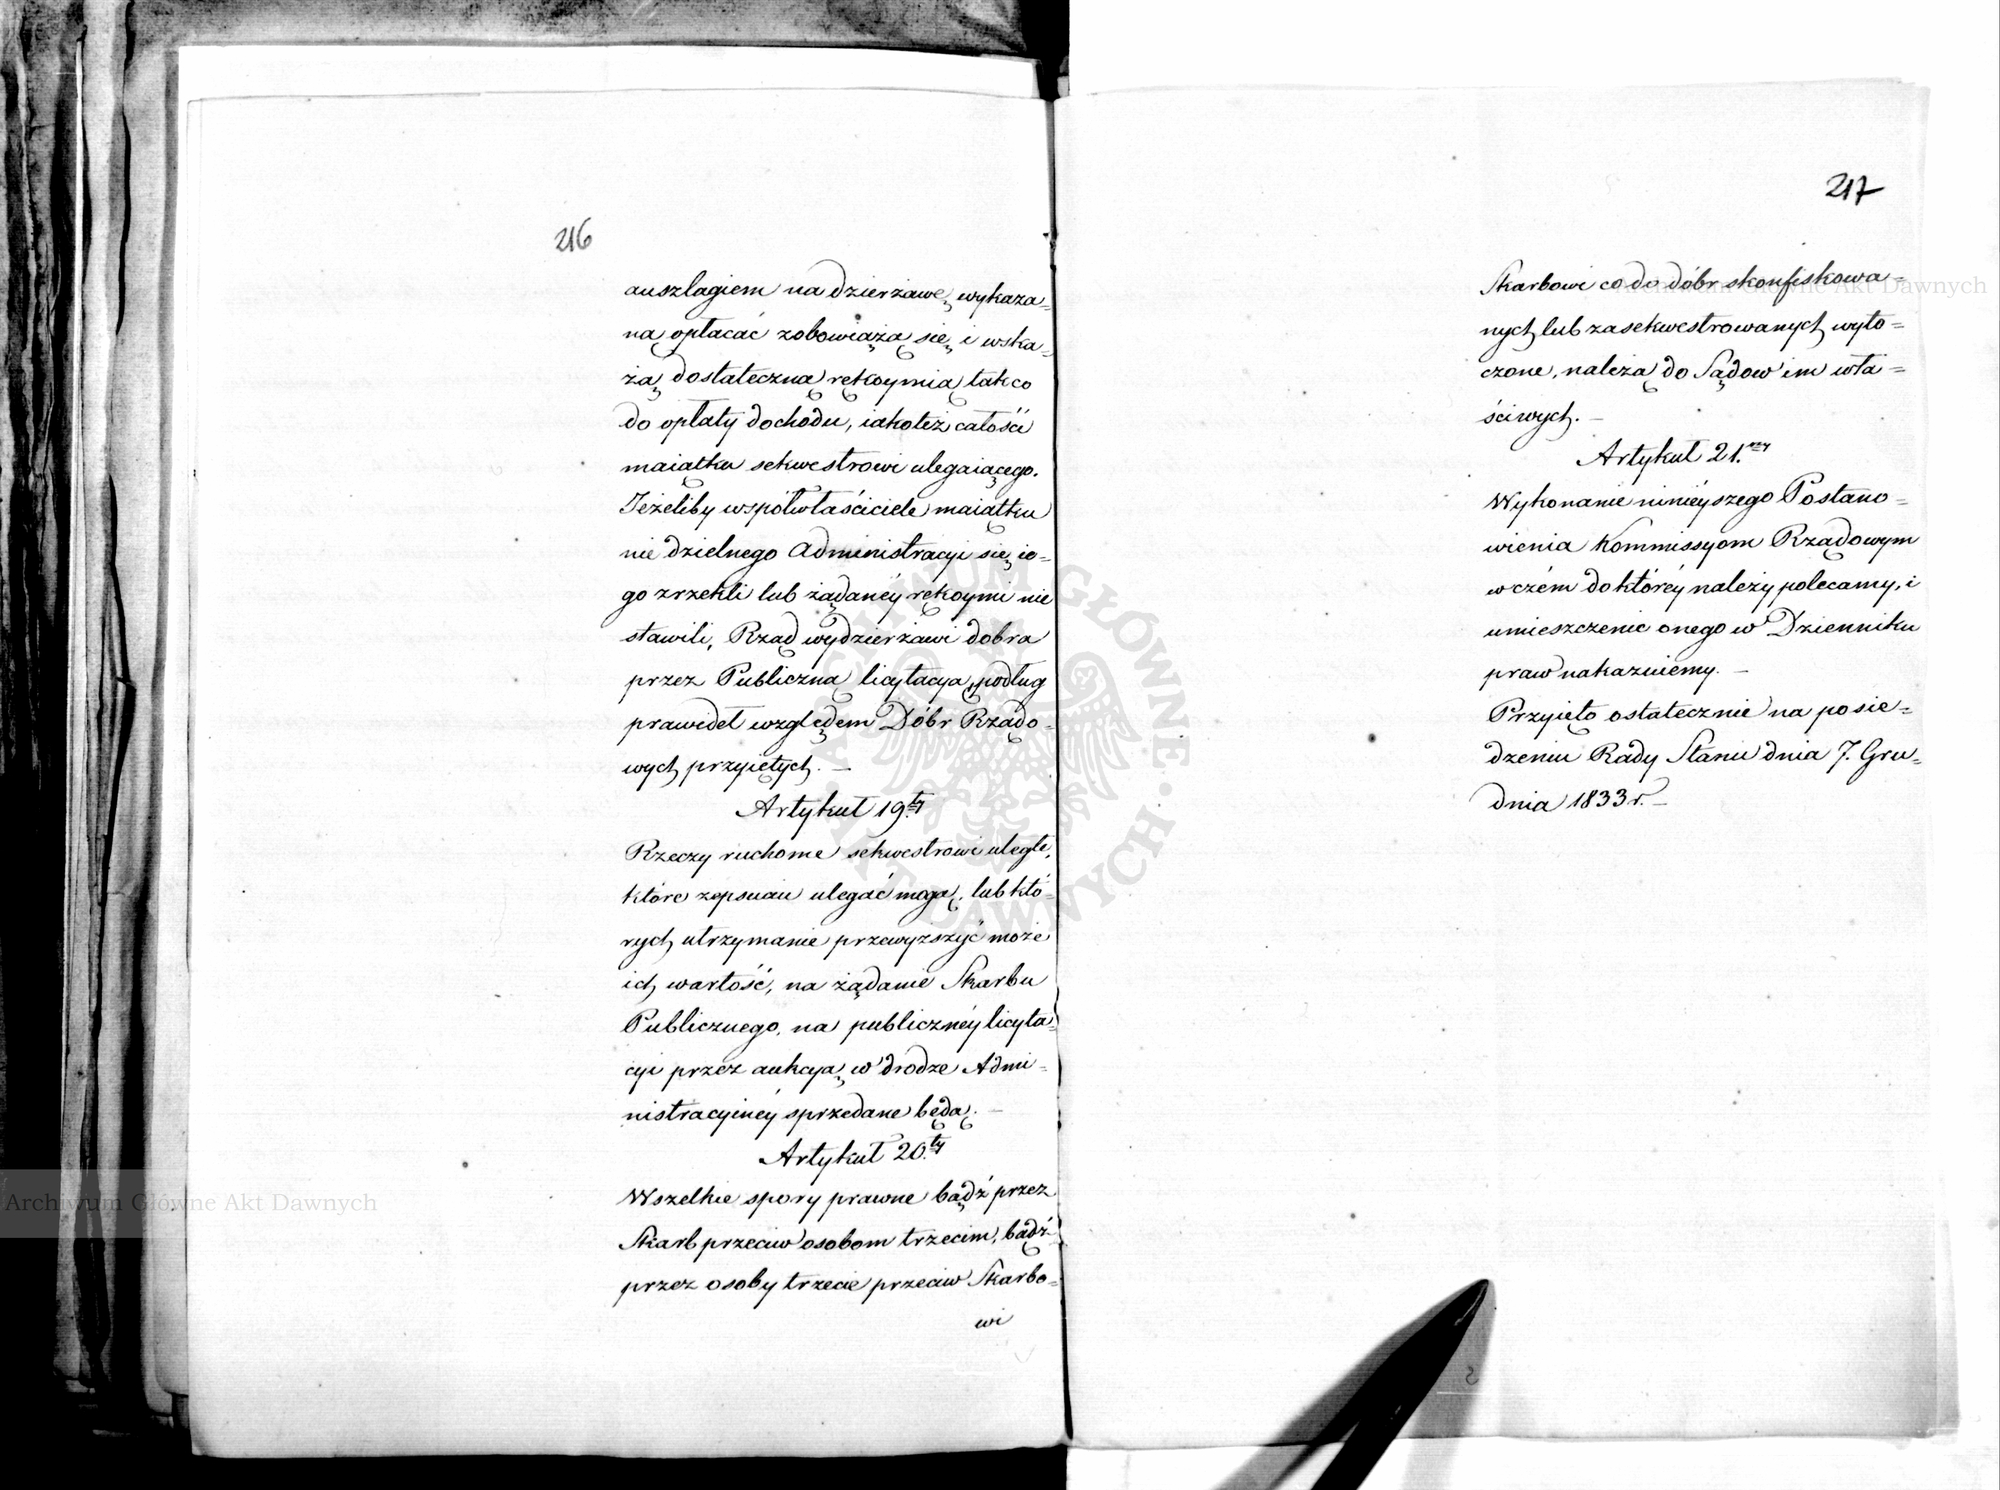 216
auszlagiem na dzierżawę wykaza-
ną opłacać zobowiążą się i wska-
żą dostateczną rękoymią tak co
do opłaty dochodu, iakoteż całości
maiątku sekwestrowi ulegaiącego.
Jeżeliby współwłaściciele maiątku
niedzielnego Administracyi się ie-
go zrzekli lub żądanéy rękoymi nie
stawili, Rząd wydzierżawi dobra
przez Publiczną licytacyą podług
prawideł względem Dóbr Rządo-
wych przyiętych. —
Artykuł 19.ty
Rzeczy ruchome sekwestrowi uległe,
które zepsuciu ulegać mogą, lub któ-
rych utrzymanie przewyższyć może
ich wartość, na żądanie Skarbu
Publicznego, na publicznéy licyta-
cyi przez aukcyą w drodze Admi-
nistracyinéy sprzedane będą. —
Artykuł 20.ty
Wszelkie spory prawne bądź przez
Skarb przeciw osobom trzecim, bądź
przez osoby trzecie przeciw Skarbo-
wi
217
Skarbowi co do dóbr skonfiskowa-
nych lub zasekwestrowanych wyto-
czone, należą do Sądów im wła-
ściwych. —
Artykuł 21.szy
Wykonanie ninieyszego Postano-
wienia Kommissyom Rządowym
w czém do któréy należy polecamy, i
umieszczenie onego w Dzienniku
praw nakazuiemy. —
Przyięto ostatecznie na posie-
dzeniu Rady Stanu dnia 7. Gru-
dnia 1833 r. —
Archiwum Główne Akt Dawnych
Archiwum Główne Akt Dawnych
ARCHIWUM GŁÓWNE AKT DAWNYCH